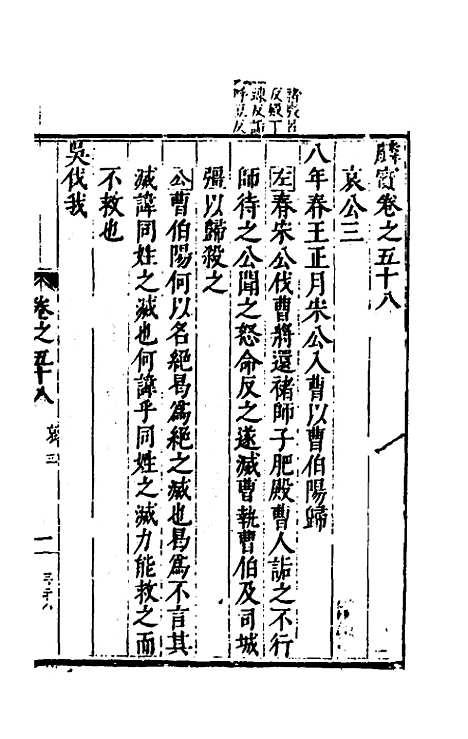 諸殿丁
麟寶卷之五十八
哀公三
八年春王正月宋公入曹以曹伯陽歸
左春宋公伐曹將還褚師子肥殿曹人詬之不行
師待之公聞之怒命反之遂滅曹執曹伯及司城
彊以歸殺之
公曹伯陽何以名絕曷爲絕之滅也曷爲不言其
滅諱同姓之滅也何諱乎同姓之滅力能救之而
不救也
吳伐我
卷之五十八 哀三 一